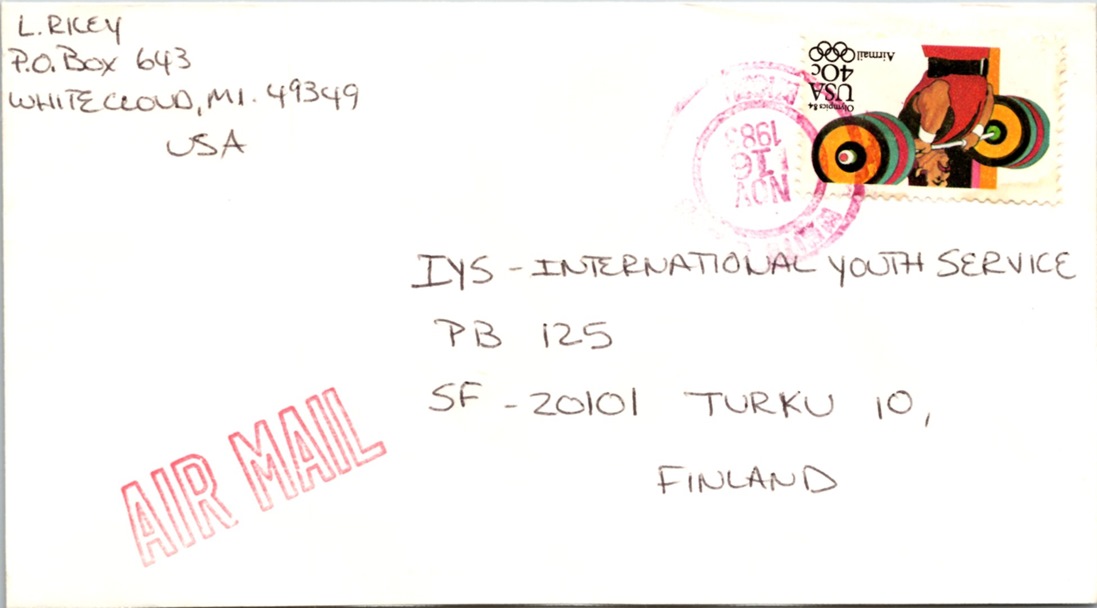 L. RILEY
P.O. BOX 643
WHITE CLOUD, MI. 49349
USA
Olympics 84
USA
40c
Airmail
NOV
16
1983
IYS - INTERNATIONAL YOUTH SERVICE
PB 125
SF - 20101 TURKU 10,
FINLAND
AIR MAIL